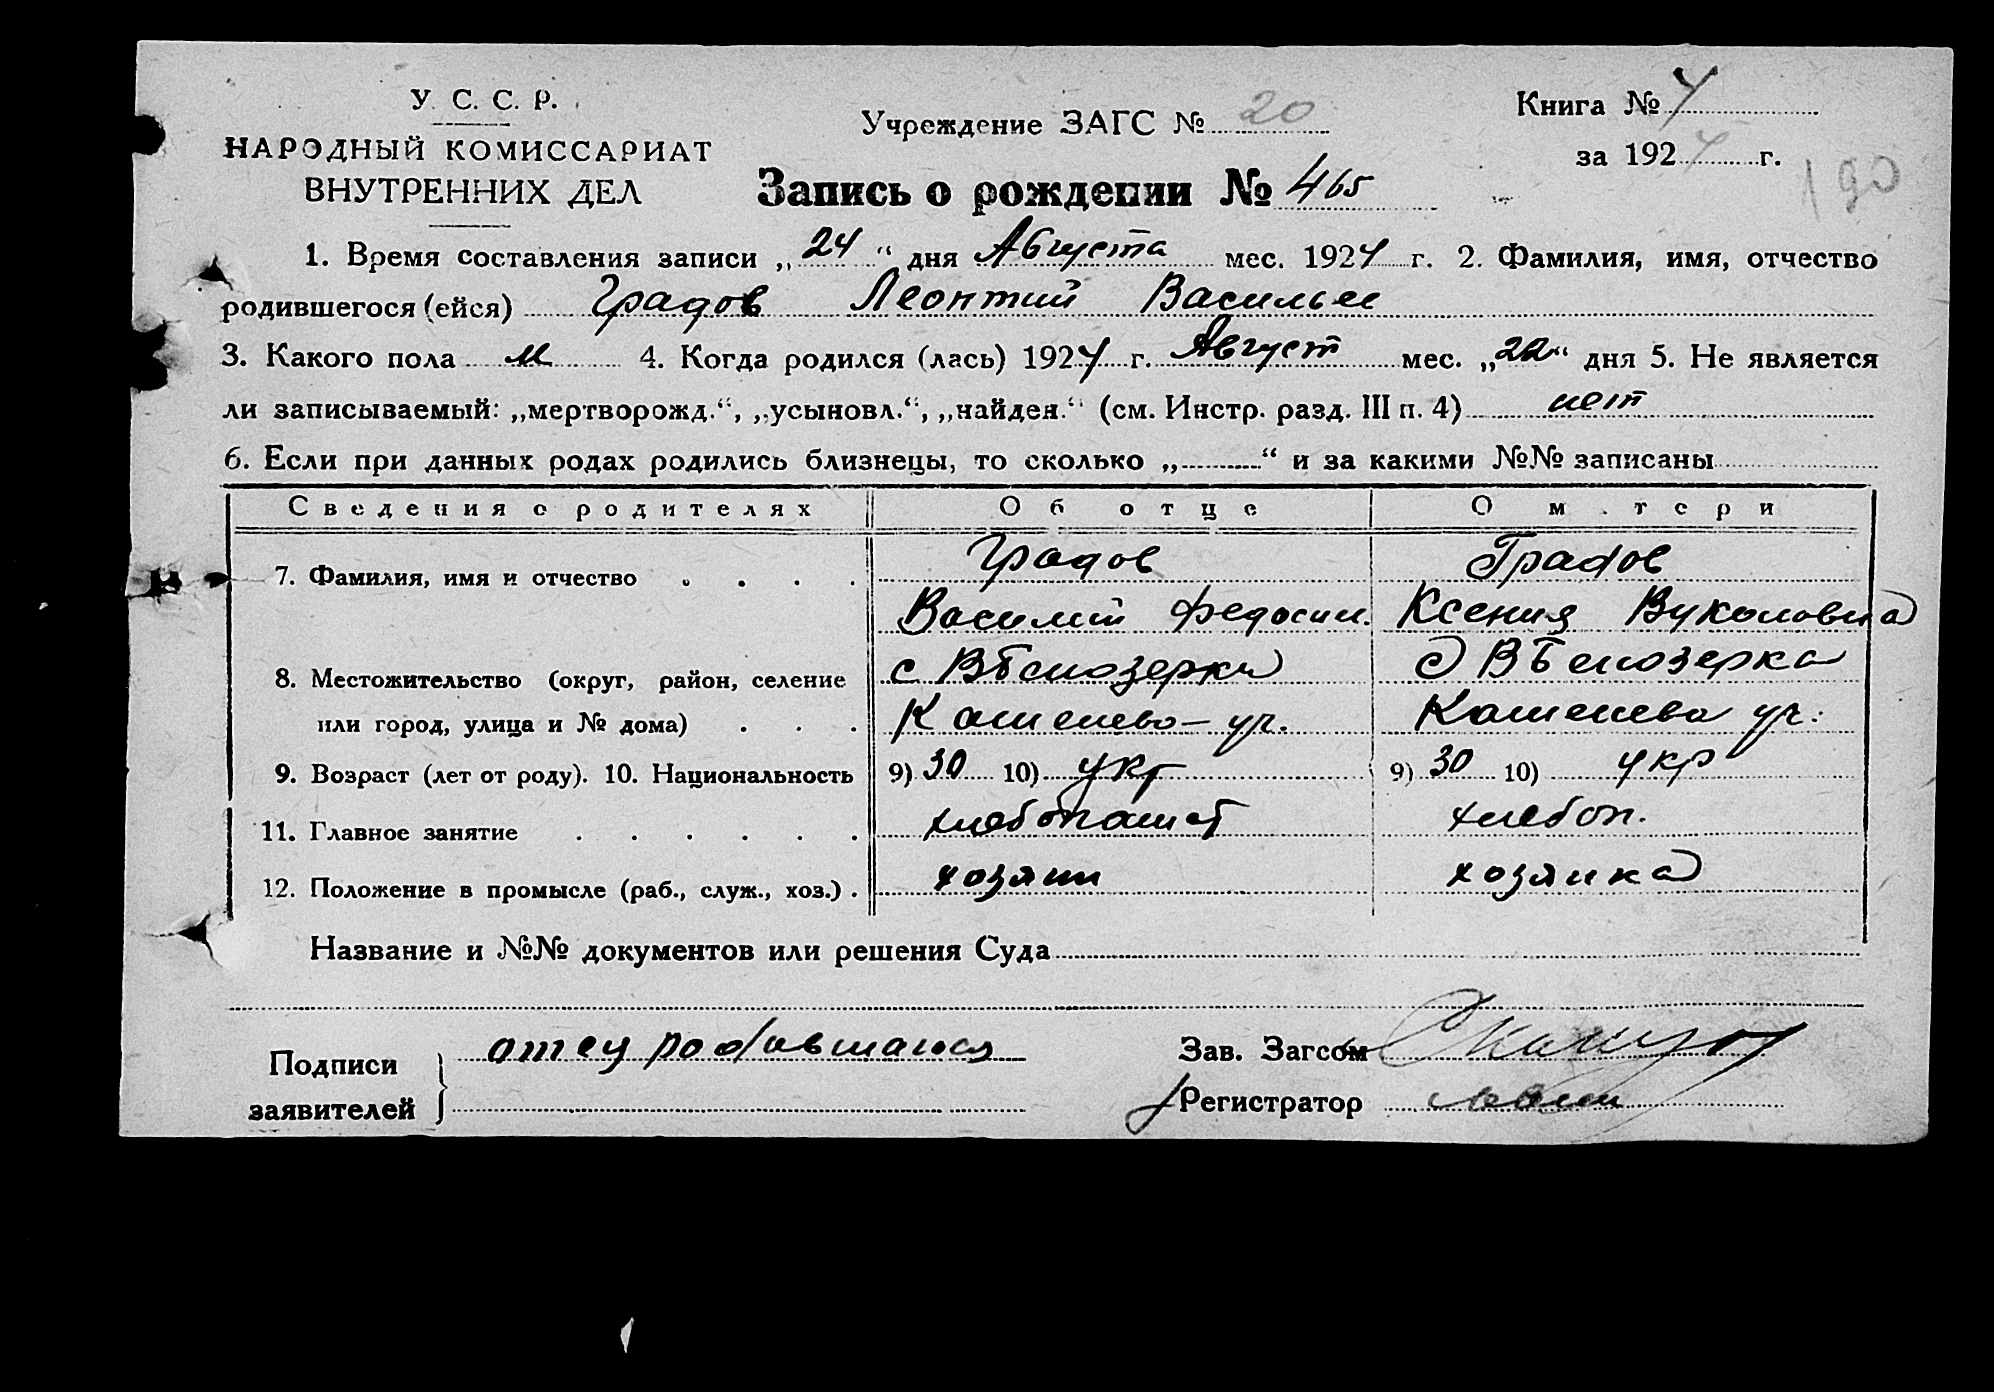 У. С. С. Р.
НАРОДНЫЙ КОМИССАРИАТ
ВНУТРЕННИХ ДЕЛ
Учреждение ЗАГС № 20
Книга № 4
за 1924 г.
190
Запись о рождении № 465
1. Время составления записи „24“ дня Августа мес. 1924 г. 2. Фамилия, имя, отчество
родившегося (ейся) Градов Леонтий Василье
3. Какого пола м 4. Когда родился (лась) 1924 г. Август мес. „22“ дня 5. Не является
ли записываемый: „мертворожд.“, „усыновл.“, „найден.“ (см. Инстр. разд. III п. 4) нет
6. Если при данных родах родились близнецы, то сколько „ “ и за какими №№ записаны
Сведения о родителях Об отце О м.тери
7. Фамилия, имя и отчество Градов Градов
Василий Федосии. Ксения Вуколовна
8. Местожительство (округ, район, селение с ВБелозерка ВБелозерка
или город, улица и № дома) ул. ул.
9. Возраст (лет от роду). 10. Национальность 9) 30 10) укр 9) 30 10) укр
11. Главное занятие хлебопашец хлебоп.
12. Положение в промысле (раб., служ., хоз.) хозяин хозяика
Название и №№ документов или решения Суда
Подписи
заявителей
отец
Зав. Загсом
Регистратор